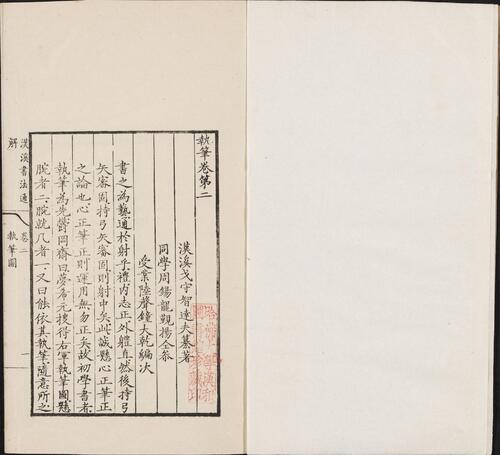 執筆卷第二
漢溪戈守智達夫纂著
同學周錫瓚覲揚仝叅
受業陸聲鐘大乾編次
書之為藝通於射乎禮内志正外體直然後持弓
矢審固持弓矢審固則射中矣此誠懸心正筆正
之論也心正筆正則運用無勿正矣故初學書者
執筆為先鬱岡齋曰夢希元授得右軍執筆圖懸
腕者二腕就几者一又曰飲依其執筆隨意所之
漢溪書法通解 卷二 執筆圖 一